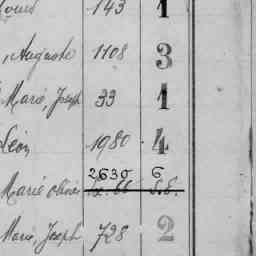 Louis 143 1
, Auguste 1108 3
Marie, Joseph 33 1
Léon 1980 4
2630 6
Marie Olivier S.E.
Marie, Joseph 728 2